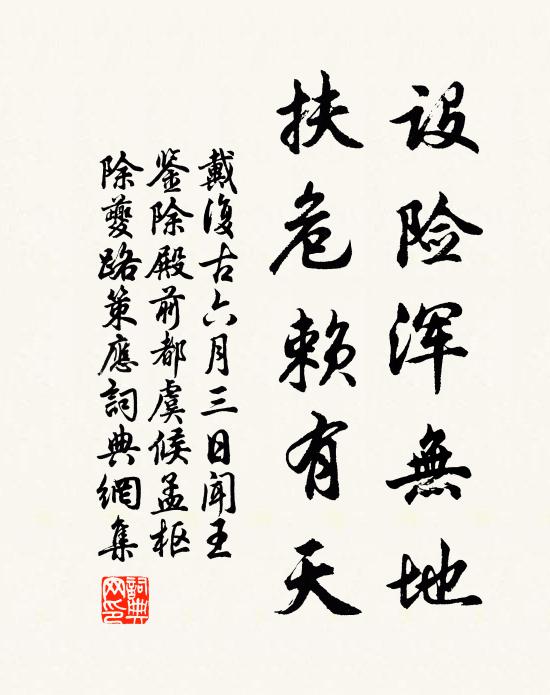 设险浑無地
扶危赖有天
戴復古六月三日闻王
鉴除殿前都虞候孟枢
除夔路策應詞典網集
詞典
网印